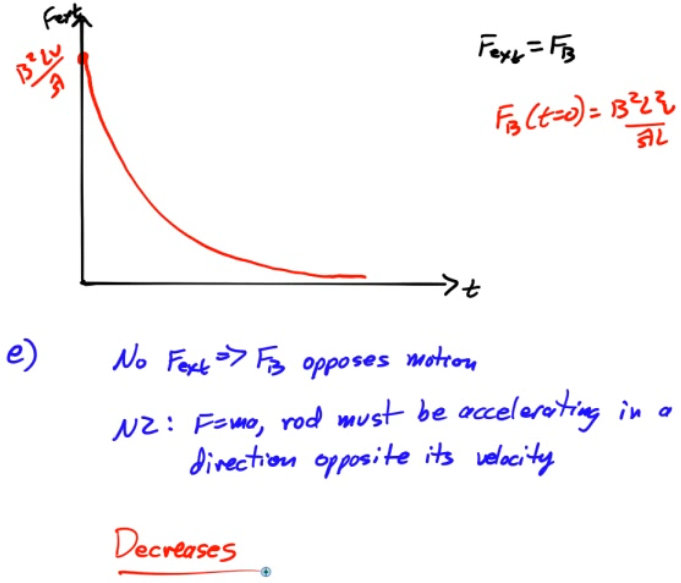 Fext
B²Lv/λ
Fext = FB
FB(t=0) = B²L²v/λL
t
e) No Fext => FB opposes motion
N2: F=ma, rod must be accelerating in a
direction opposite its velocity
Decreases